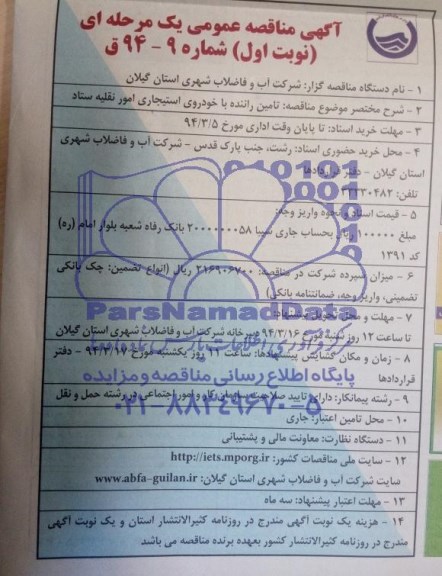 آگهی مناقصه عمومی یک مرحله ای
(نوبت اول) شماره ۹ – ۹۴ ق
۱ – نام دستگاه مناقصه گزار: شرکت آب و فاضلاب شهری استان گیلان
۲ – شرح مختصر موضوع مناقصه: تامین راننده با خودروی استیجاری امور نقلیه ستاد
۳ – مهلت خرید اسناد: تا پایان وقت اداری مورخ ۹۴/۳/۵
۴ – محل خرید حضوری اسناد: رشت، جنب پارک قدس – شرکت آب و فاضلاب شهری
استان گیلان – دفتر قراردادها
تلفن:
۵ – قیمت اسناد و نحوه واریز وجه:
مبلغ ۱۰۰۰۰۰ ریال بحساب جاری سیبا بانک رفاه شعبه بلوار امام (ره)
کد ۱۳۹۱
۶ – میزان سپرده شرکت در مناقصه: ۲۱۶۹۰۶۷۰۰ ریال (انواع تضمین: چک بانکی
تضمینی، واریز وجه، ضمانتنامه بانکی)
۷ – مهلت و محل
تا ساعت ۱۲ روز شنبه مورخ ۹۴/۳/۱۶ دبیرخانه شرکت آب و فاضلاب شهری استان گیلان
۸ – زمان و مکان گشایش پیشنهادها: ساعت ۱۱ روز یکشنبه مورخ ۹۴/۳/۱۷ – دفتر
قراردادها
۹ – رشته پیمانکار: دارای تایید صلاحیت سازمان کار و امور اجتماعی در رشته حمل و نقل
۱۰ – محل تامین اعتبار: جاری
۱۱ – دستگاه نظارت: معاونت مالی و پشتیبانی
۱۲ – سایت ملی مناقصات کشور: http://iets.mporg.ir
سایت شرکت آب و فاضلاب شهری استان گیلان: www.abfa-guilan.ir
۱۳ – مهلت اعتبار پیشنهاد: سه ماه
۱۴ – هزینه یک نوبت آگهی مندرج در روزنامه کثیرالانتشار استان و یک نوبت آگهی
مندرج در روزنامه کثیرالانتشار کشور بعهده برنده مناقصه می باشد
ParsNamadData
پایگاه اطلاع رسانی مناقصه و مزایده
۰۲۱-۸۸۳۴۹۶۷۰-۵